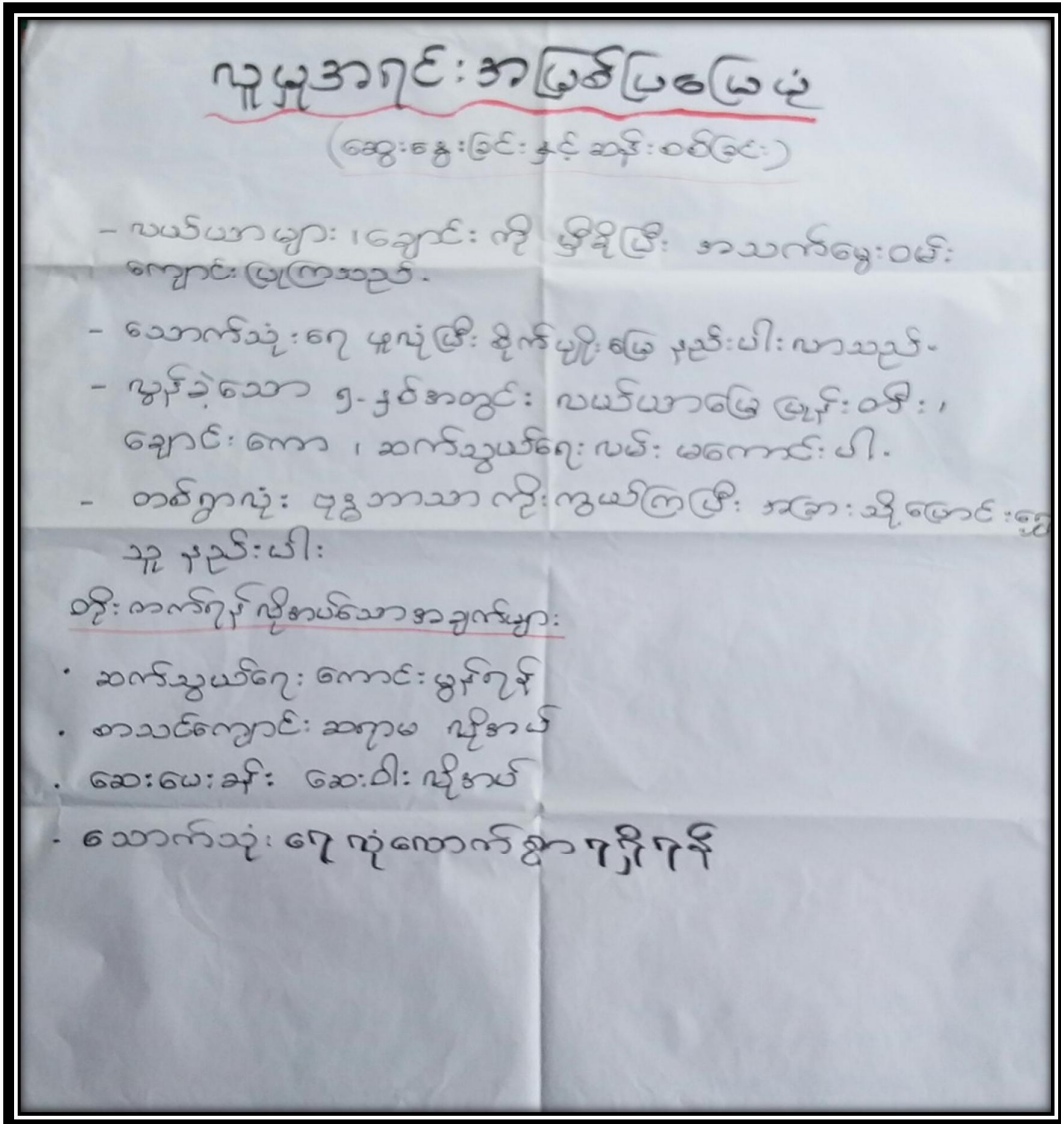 လူမှုအရင်းအမြစ်ပြမြေပုံ
(ဆွေးနွေးခြင်းနှင့် ဆန်းစစ်ခြင်း)
- လယ်ယာများ ၊ ချောင်း ကို မှီခိုပြီး အသက်မွေးဝမ်း
ကျောင်းပြုကြသည်။
- သောက်သုံးရေ ရှားပြီး စိုက်ပျိုးမြေ နည်းပါးလာသည်။
- လွန်ခဲ့သော ၅-နှစ်အတွင်း လယ်ယာမြေ ပြုန်းတီး ၊
ချောင်းကော ၊ ဆက်သွယ်ရေးလမ်း မကောင်းပါ။
- တစ်ရွာလုံး ဗုဒ္ဓဘာသာ ကိုးကွယ်ကြပြီး အခြားသို့ပြောင်းရွှေ့
သူ နည်းပါး
တိုးတက်ရန်လိုအပ်သောအချက်များ
· ဆက်သွယ်ရေး ကောင်းမွန်ရန်
· စာသင်ကျောင်း ဆရာမ လိုအပ်
· ဆေးပေးခန်း ဆေးဝါး လိုအပ်
· သောက်သုံးရေ လုံလောက်စွာ ရရှိရန်